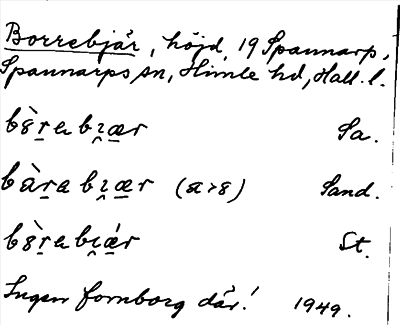 Borrebjär, höjd, 19 Spannarp,
Spannarps sn, Himle hd, Hall. l.
bò̱rabı̯æ̱r Sa.
bàra̱bı̯æ̱r (a>8) Sand.
bò̱rabı̯ǽ̱r St.
Ingen fornborg där! 1949.